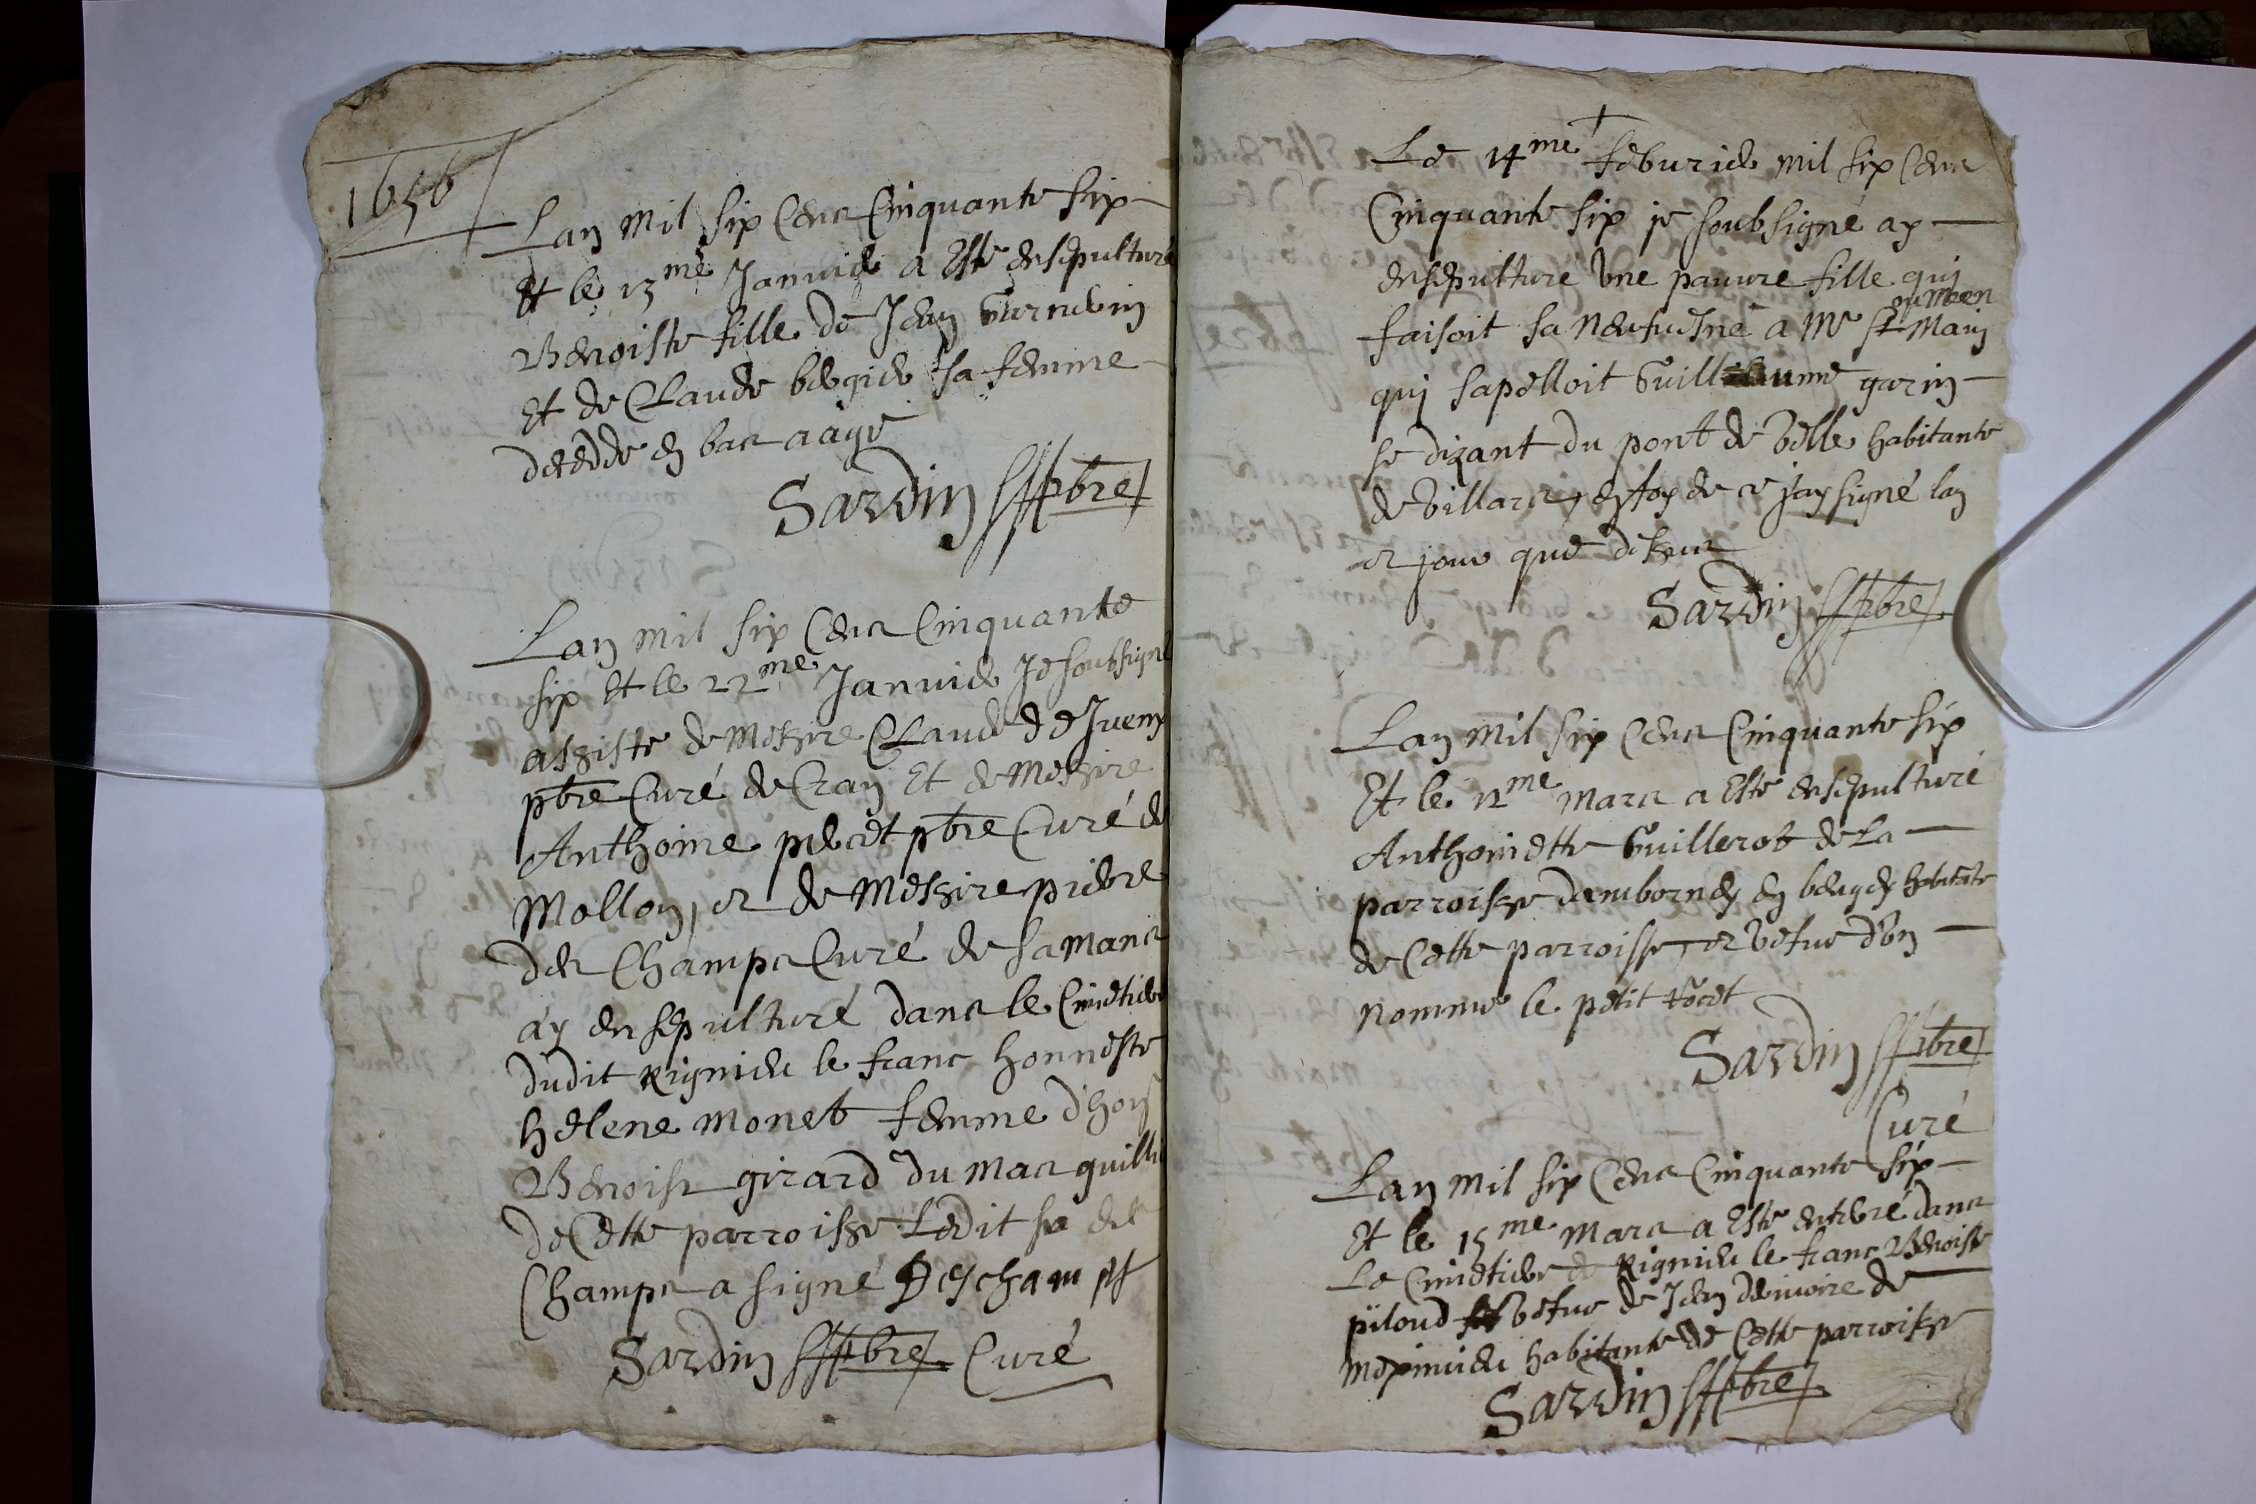 1656
Lan mil six cens Cinquante six
Et le 13me Janvier a Esté ensepulturé
Benoiste fille de Jean
Et de Claude sa femme
décédée en bas aage
Sardin pbre
Lan mil six cens Cinquante
six Et le 22me Janvier Je soubsigné
assisté de Messire Claude de Jueny
pbre Curé de Cran Et de Messire
Anthoine pbre Curé de
Mollon, et de Messire pierre
des Champs Curé de Samans
ay ensepulturé dans le Cimetiere
dudit Rignieu le franc honneste
helene monet femme d'hon
Benoist girard du mas
de Cette parroisse Ledit sr des
Champs a signé Deschamps
Sardin pbre Curé
Le 14me feburier mil six Cens
Cinquante six je soubsigné ay
ensepulturé Une pauvre fille qui
faisoit sa a
qui sapelloit garin
se dizant du pont de Velle habitante
de Villars, en foy de ce j'ay signé lan
et jour que dessus
Sardin pbre
Lan mil six Cens Cinquante six
Et le 12me mars a Esté ensepulturé
Anthoinette Guillerot de La
parroisse damborney en beugey habitãte
de Cette parroisse, et vefve d'Vn
nommé le petit
Sardin pbre
Curé
Lan mil six Cens Cinquante six
Et le 15me mars a Esté enterré dans
Le Cimetiere de Rignieu le franc Benoiste
piloud vefve de Jean de
meximieu habitante de Cette parroisse
Sardin pbre